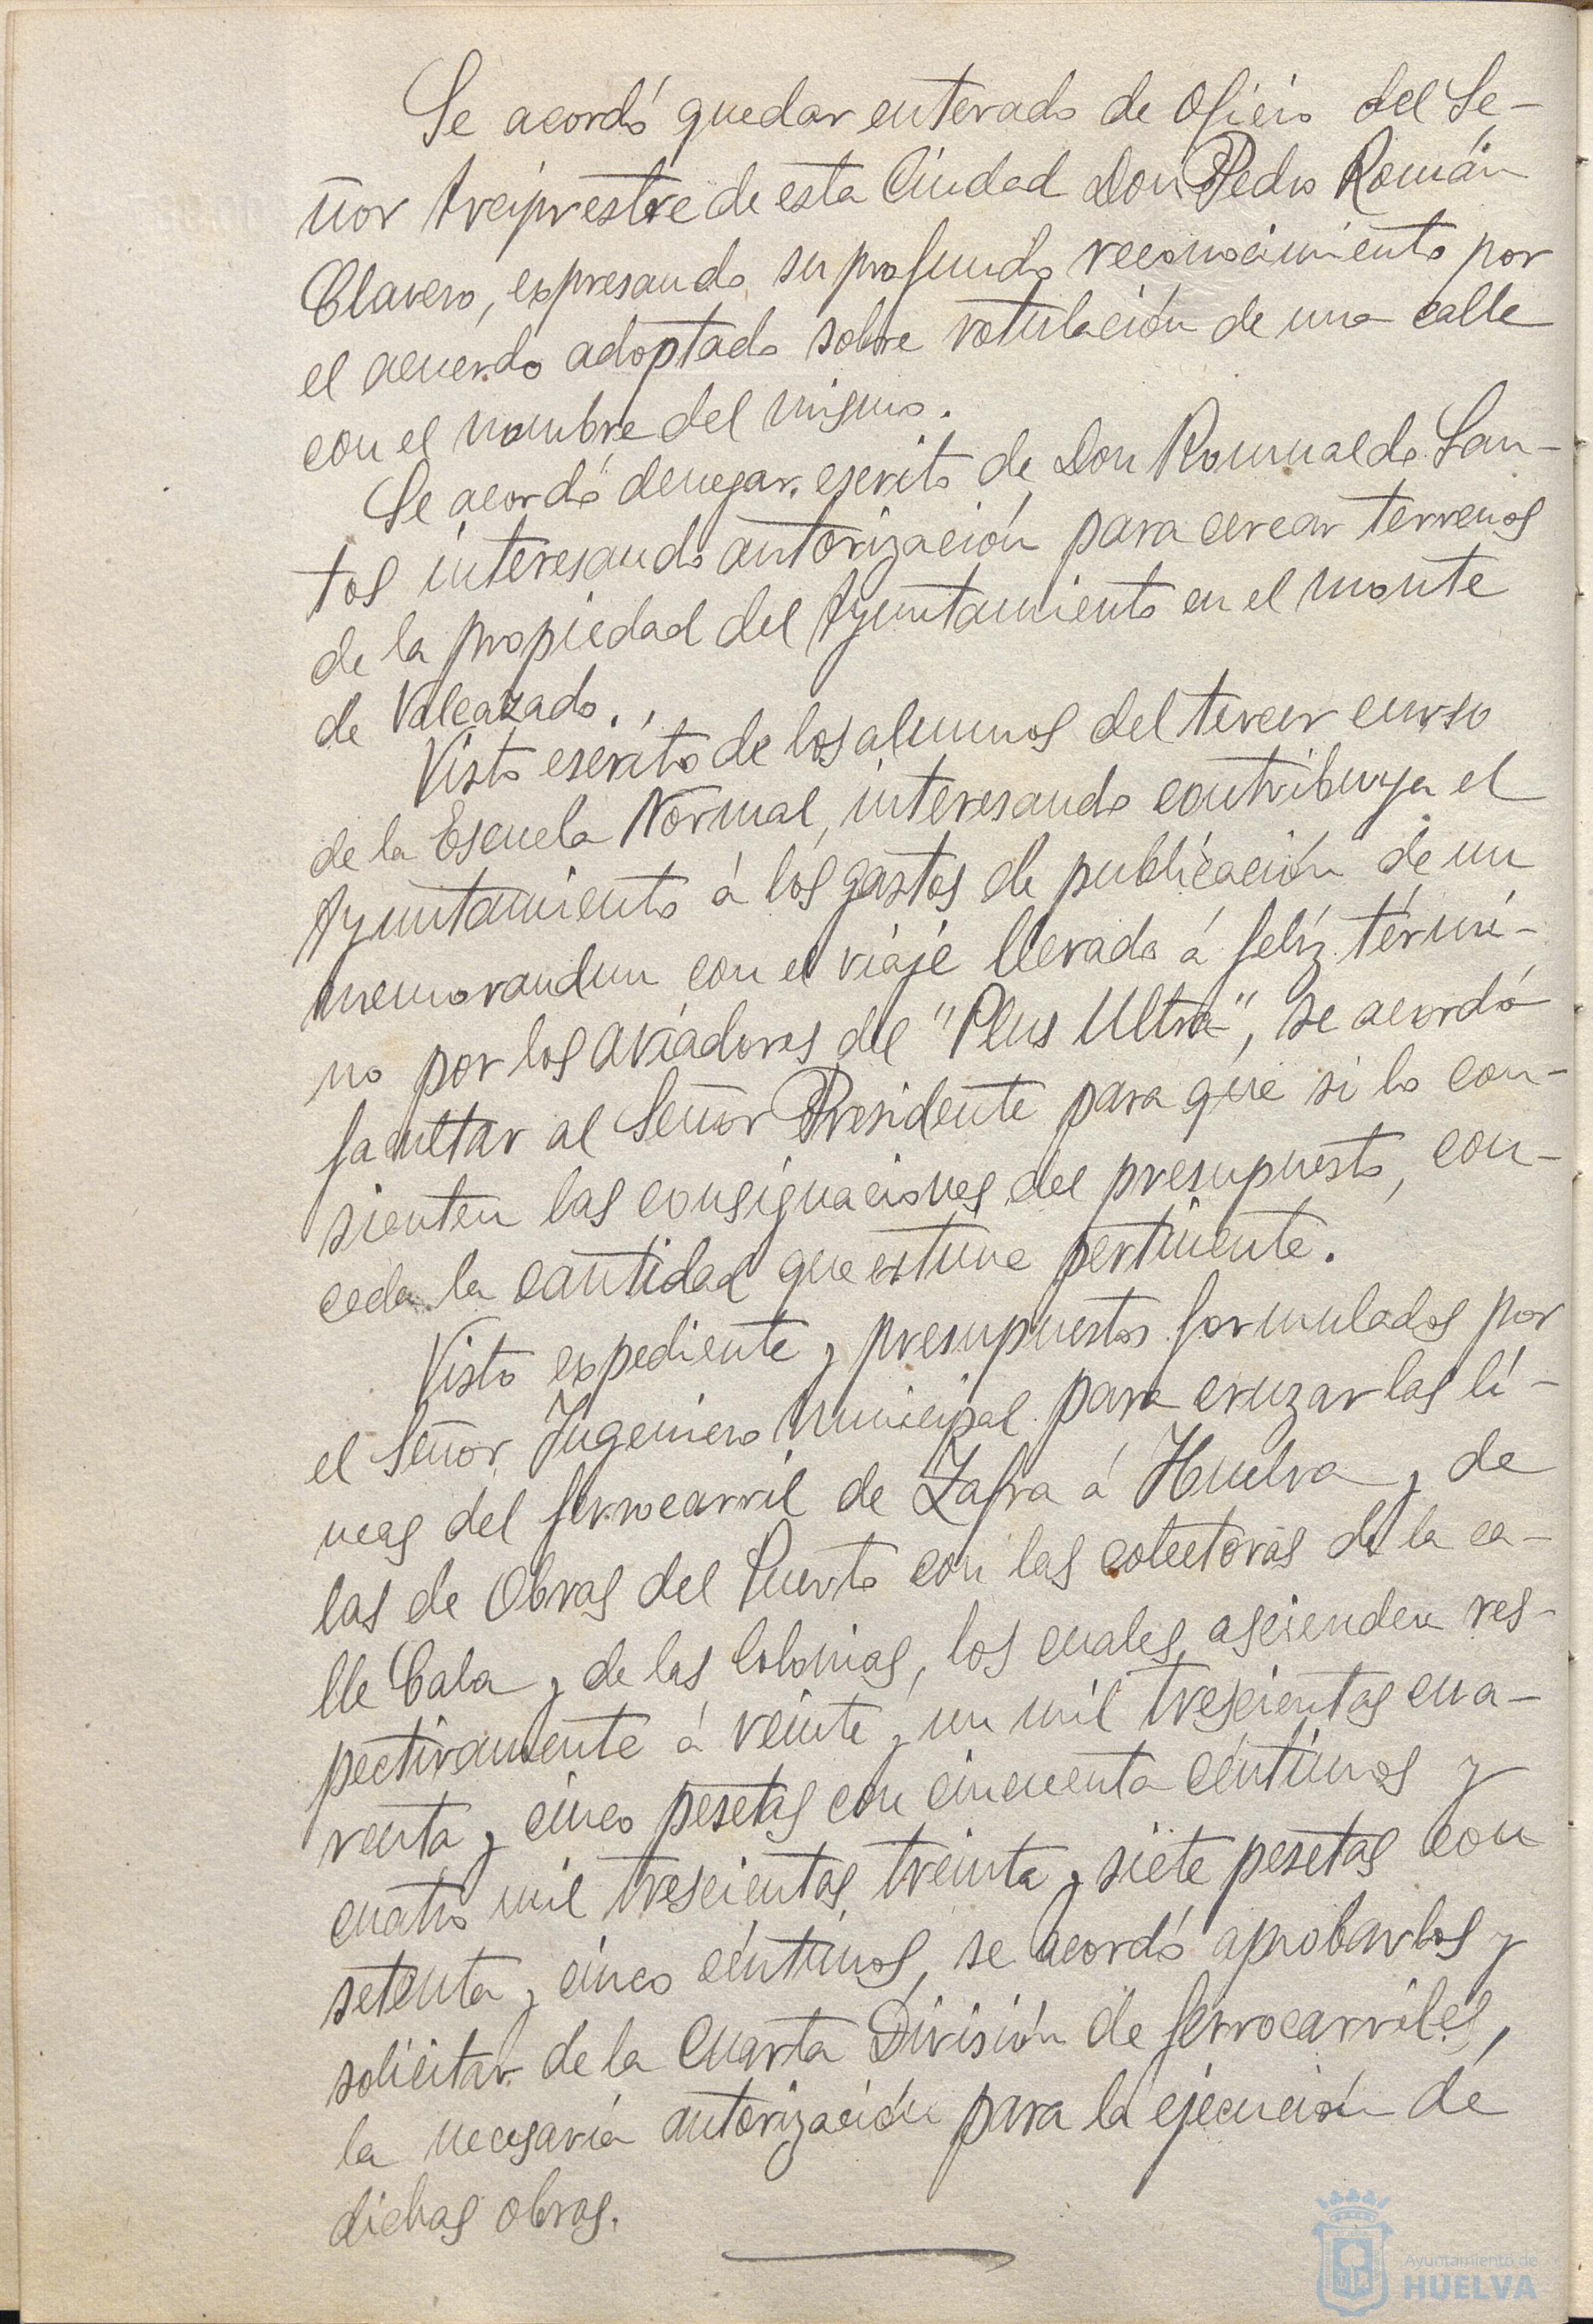 Se acordó quedar enterado de oficio del Se-
ñor Arcipreste de esta Ciudad Don Pedro Román
Clavero, expresando su profundo reconocimiento por
el acuerdo adoptado sobre rotulación de una calle
con el nombre del mismo.
Se acordó denegar escrito de Don Romualdo San-
tos interesando autorización para cercar terrenos
de la propiedad del Ayuntamiento en el monte
de Valcazado.
Visto escrito de los alumnos del tercer curso
de la Escuela Normal, interesando contribuya el
Ayuntamiento á los gastos de publicación de un
memorandum con el viaje llevado á felíz térmi-
no por los aviadores del "Plus Ultra", se acordó
facultar al Señor Presidente para que si lo con-
sienten las consignaciones del presupuesto, con-
ceda la cantidad que estime pertinente.
Visto expediente y presupuestos formulados por
el Señor Ingeniero Municipal para cruzar las lí-
neas del ferrocarril de Zafra á Huelva y de
las de Obras del Puerto con las colectoras de la ca-
lle Cala y de las Colonias, los cuales ascienden res-
pectivamente á veinte y un mil trescientas cua-
renta y cinco pesetas con cincuenta céntimos y
cuatro mil trescientas treinta y siete pesetas con
setenta y cinco céntimos, se acordó aprobarlos y
solicitar de la Cuarta División de ferrocarriles,
la necesaria autorización para la ejecución de
dichas obras.
Ayuntamiento de
HUELVA